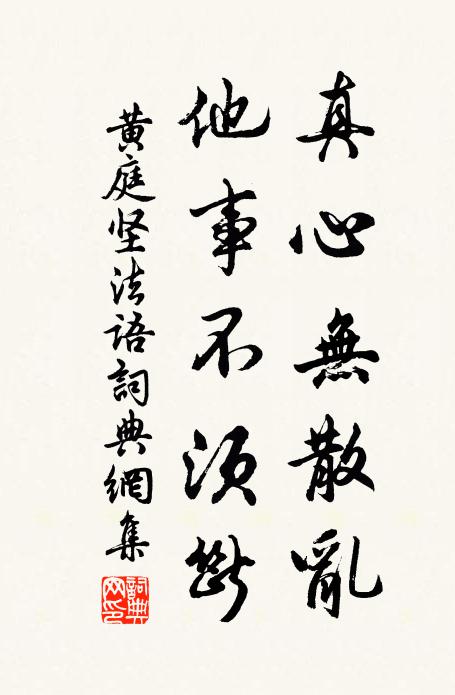 真心無散亂
他事不須斷
黄庭坚法語詞典網集
詞典網印